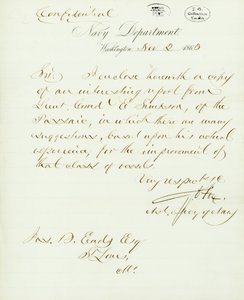 Confidential
Navy Department,
Washington, Nov 2 1863
Sir. I enclose herewith a copy
of an interesting report from
Lieut. Comdr. E Simpson, of the
Passaic, in which there are many
suggestions, based upon his actual
experience, for the improvement of
that class of vessels.
Very respectf
Jas. B. Eads Esq
St. Louis,
Mo.